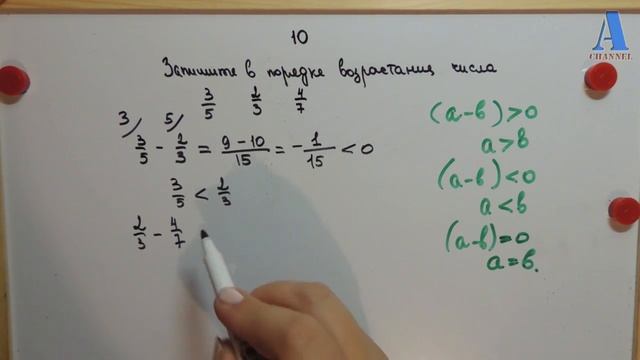 10
Запишите в порядке возрастания числа
3/5 2/3 4/7
3/ 5/
3/5 - 2/3 = 9-10/15 = -1/15 < 0
3/5 < 2/3
2/3 - 4/7
(a-b)>0
a>b
(a-b)<0
a<b
(a-b)=0
a=b.
A
CHANNEL